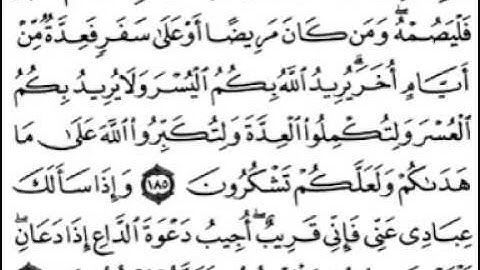 فَلْيَصُمْهُ ۖ وَمَن كَانَ مَرِيضًا أَوْ عَلَىٰ سَفَرٍ فَعِدَّةٌ مِّنْ
أَيَّامٍ أُخَرَ ۗ يُرِيدُ اللَّهُ بِكُمُ الْيُسْرَ وَلَا يُرِيدُ بِكُمُ
الْعُسْرَ وَلِتُكْمِلُوا الْعِدَّةَ وَلِتُكَبِّرُوا اللَّهَ عَلَىٰ مَا
هَدَىٰكُمْ وَلَعَلَّكُمْ تَشْكُرُونَ ١٨٥ وَإِذَا سَأَلَكَ
عِبَادِى عَنِّى فَإِنِّى قَرِيبٌ ۖ أُجِيبُ دَعْوَةَ الدَّاعِ إِذَا دَعَانِ ۖ